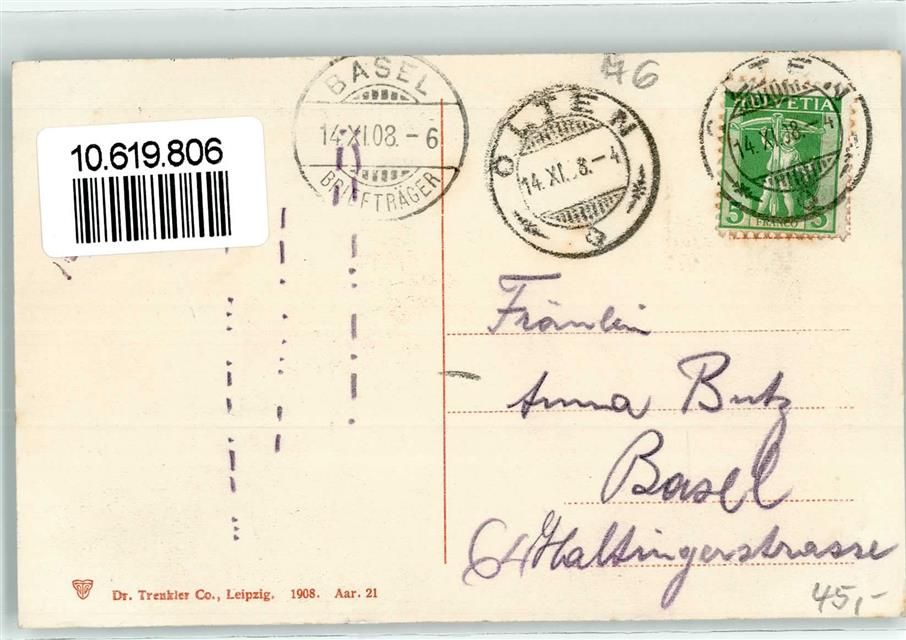 10.619.806
BASEL
14.XI.08.-6
BRIEFTRÄGER
76
OLTEN
14.XI. 8.-4
HELVETIA
14.XI.08.-4
5 FRANCO 5
Fräulein
Anna Butz
Basel
64 Haltingerstrasse
Dr. Trenkler Co., Leipzig. 1908. Aar. 21
45,-